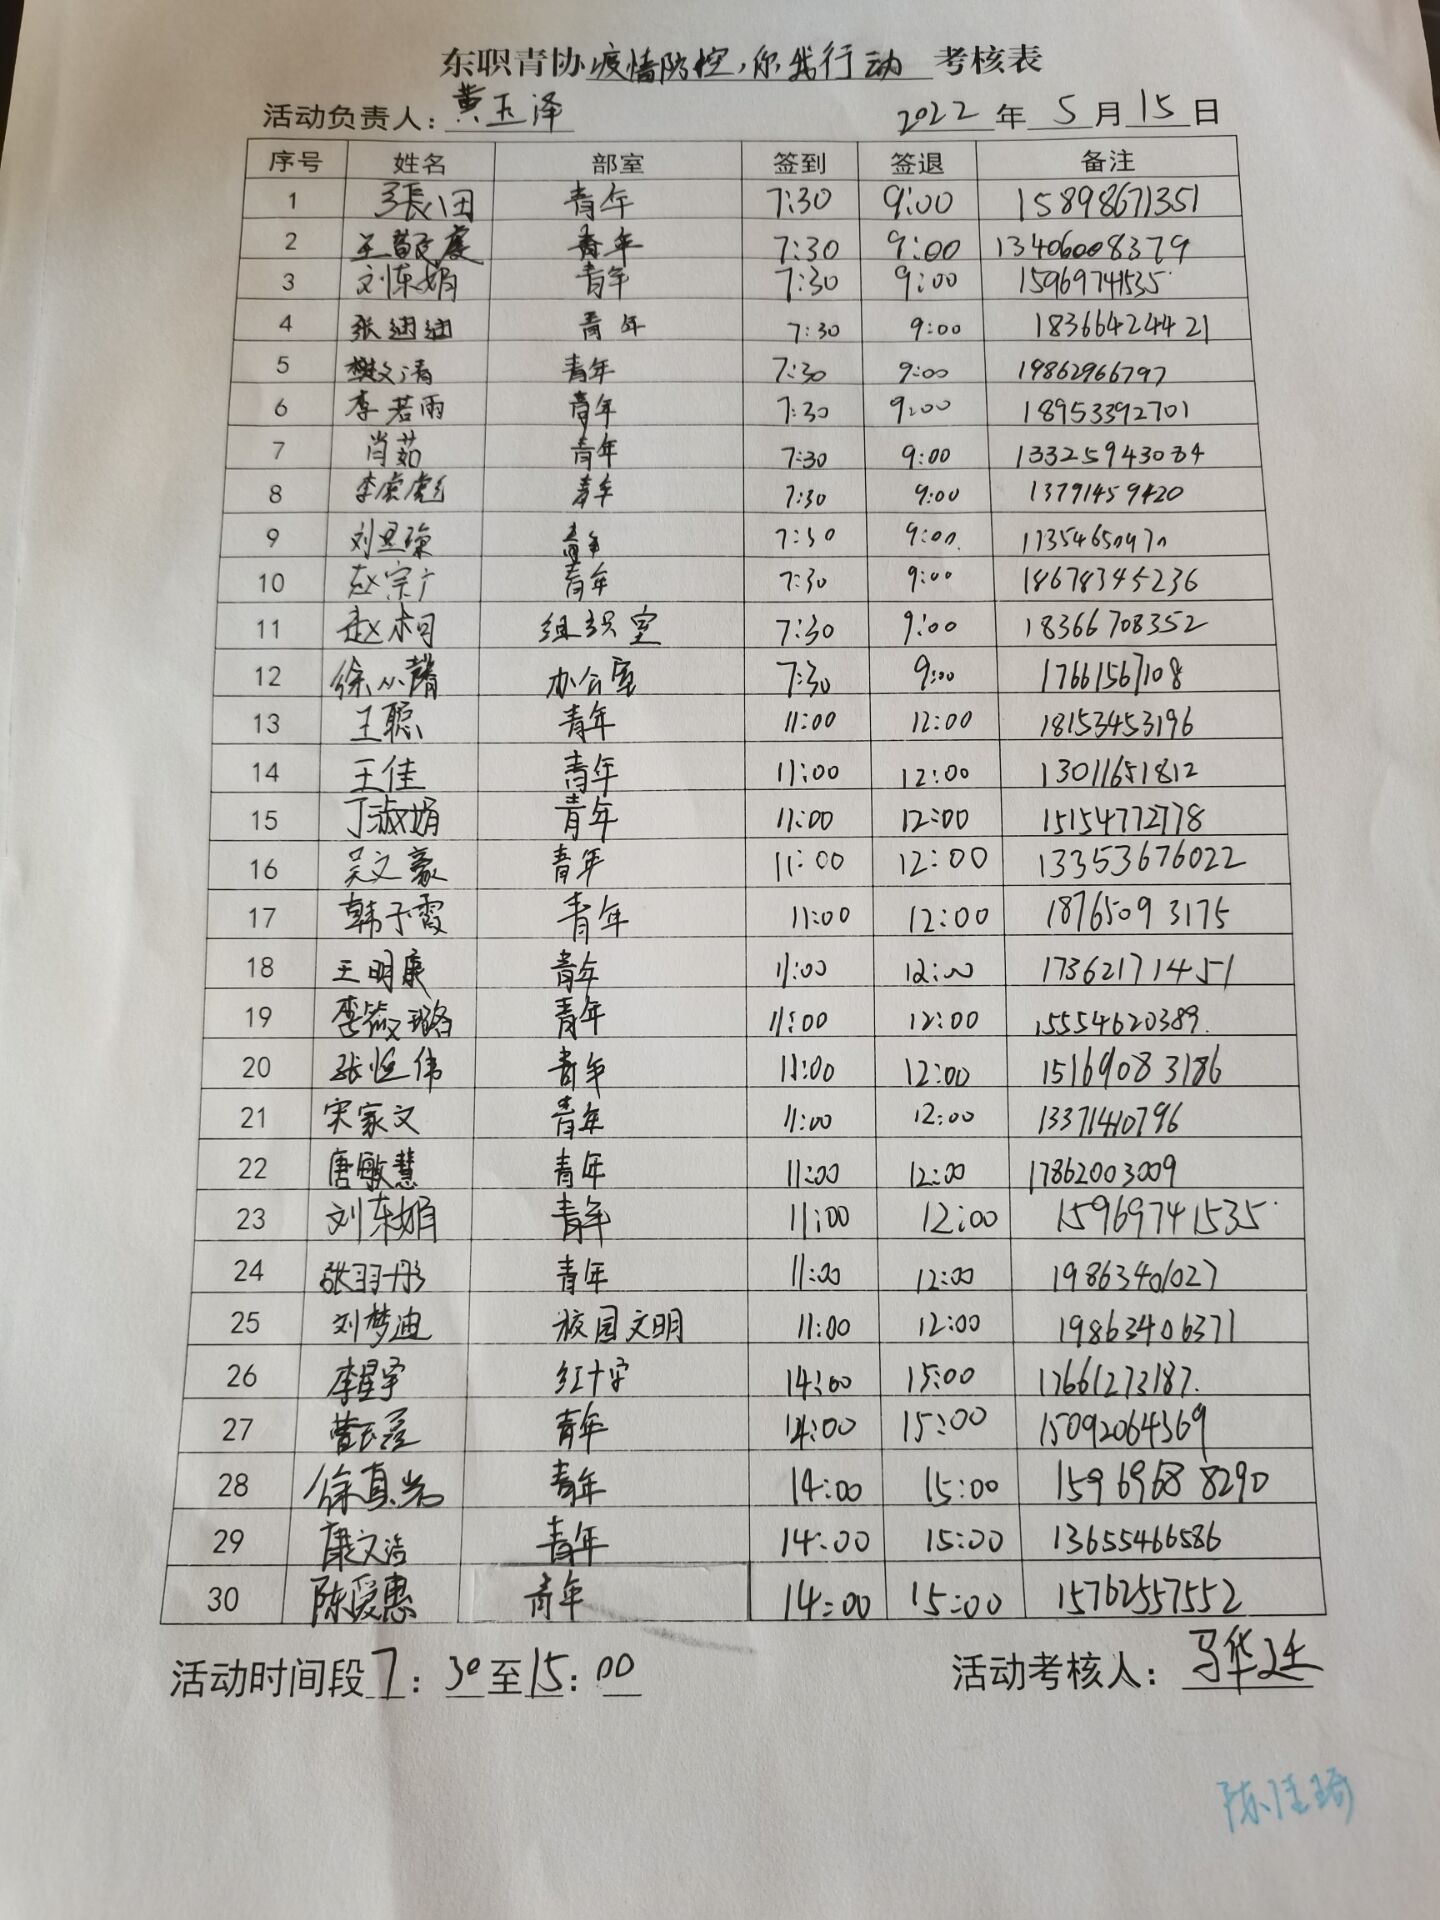 东职青协疫情防控,你我行动考核表
活动负责人:黄玉泽 2022年5月15日
序号 姓名 部室 签到 签退 备注
1 張八田 青年 7:30 9:00 15898671351
2 青年 7:30 9:00 13406008379
3 刘东娟 青年 7:30 9:00 15969741535
4 张迪迪 青年 7:30 9:00 18366424421
5 樊文清 青年 7:30 9:00 19862966797
6 李若雨 青年 7:30 9:00 18953392701
7 肖茹 青年 7:30 9:00 13325943084
8 青年 7:30 9:00 13791459420
9 青年 7:30 9:00
10 赵宗广 青年 7:30 9:00 18678345236
11 组织室 7:30 9:00 18366708352
12 办公室 7:30 9:00 17661567108
13 王聪 青年 11:00 12:00 18153453196
14 王佳 青年 11:00 12:00 13011651812
15 丁淑娟 青年 11:00 12:00 15154772778
16 吴文豪 青年 11:00 12:00 13353676022
17 韩子霞 青年 11:00 12:00 18765093175
18 王明康 青年 11:00 12:00 17362171451
19 李筱璐 青年 11:00 12:00 15554620389.
20 张恒伟 青年 11:00 12:00 15169083186
21 宋家文 青年 11:00 12:00 13371410796
22 唐敏慧 青年 11:00 12:00 17862003009
23 刘东娟 青年 11:00 12:00 15969741535
24 张羽彤 青年 11:00 12:00 19863401027
25 刘梦迪 校园文明 11:00 12:00 19863406371
26 李星宇 红十字 14:00 15:00 17661273187.
27 青年 14:00 15:00 15092064369
28 徐真岩 青年 14:00 15:00 15969688290
29 康文洁 青年 14:00 15:00 13655466586
30 陈爱惠 青年 14:00 15:00 15762557552
活动时间段7:30至15:00 活动考核人:马华廷
陈佳琦